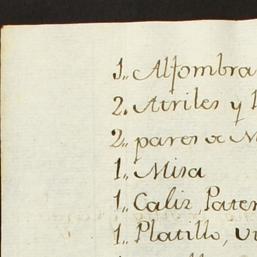 1,, Alfombra
2. Atriles y
2,, pares de
1,, Misa
1,, Caliz, Paten
1,, Platillo, v